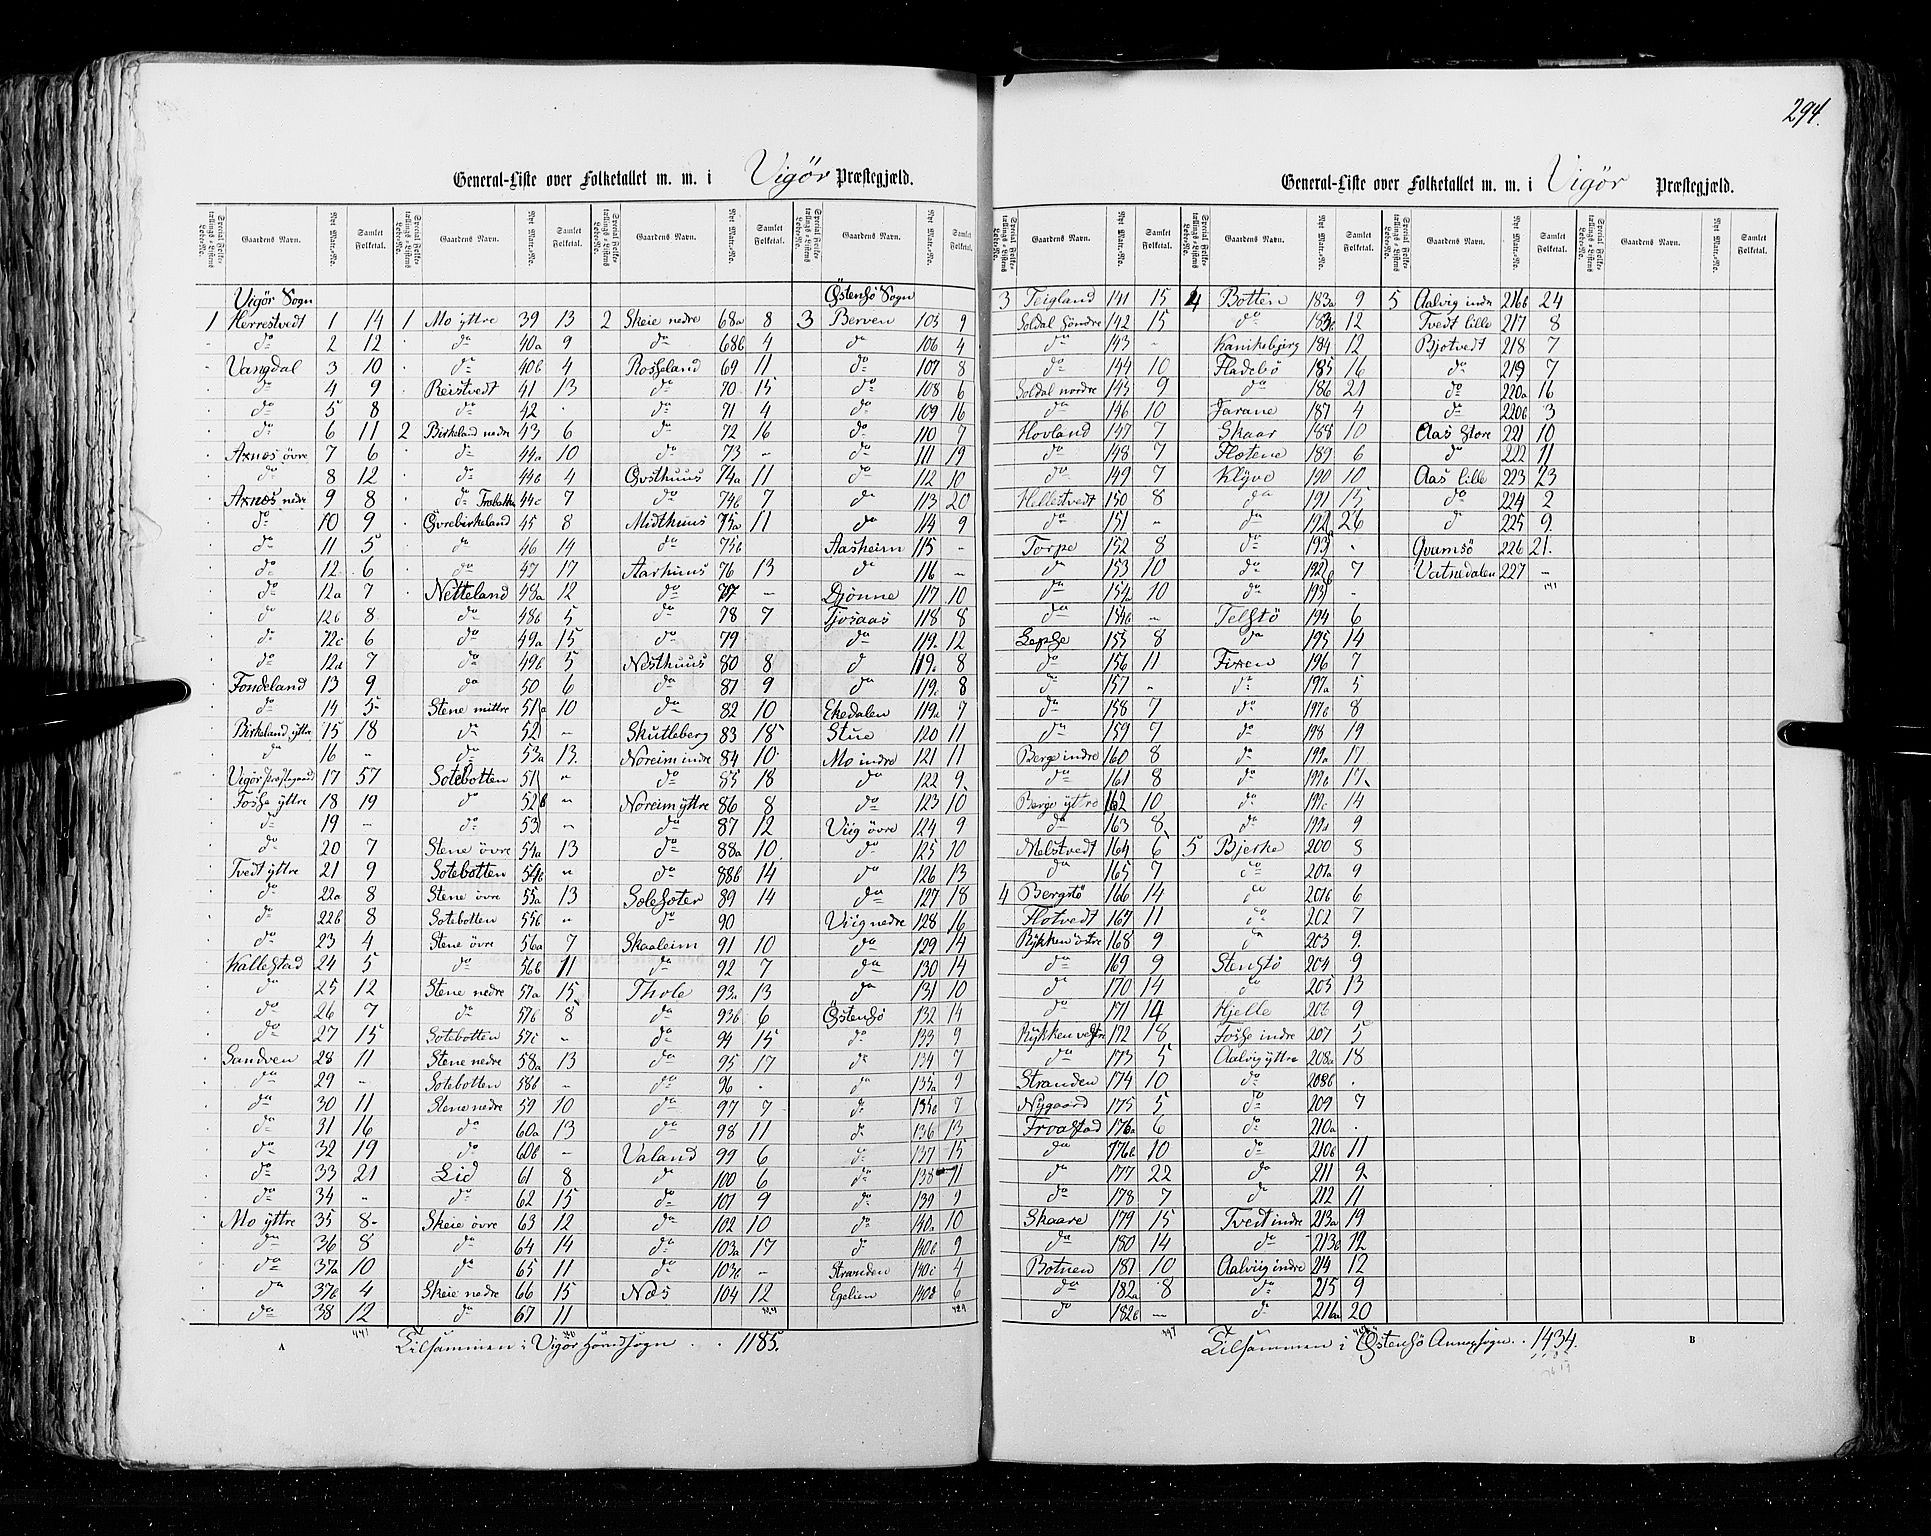 294.
General-Liste over Folketallet m. m. i Vigör Præstegjæld.
Special Folketællings-Listens Løbe-No. Gaardens Navn. Nyt Matr.-No. Samlet Folketal.
Vigör Sogn
1 Herrestvedt 1 14
do 2 12
Vangdal 3 10
do 4 9
do 5 8
do 6 11
Axnæs övre 7 6
do 8 12
Axnæs nedre 9 8
do 10 9
do 11 5
do 12 6
do 12a 7
do 12b 8
do 12c 6
do 12d 7
Fondeland 13 9
do 14 5
Birkeland yttre 15 18
do 16 "
Vigör Præstegaard 17 57
Fosse yttre 18 19
do 19 –
do 20 7
Tvedt yttre 21 9
do 22a 8
do 22b 8
do 23 4
Kallestad 24 5
do 25 12
do 26 7
do 27 15
Sandven 28 11
do 29 –
do 30 11
do 31 16
do 32 19
do 33 21
do 34 "
Mo yttre 35 8
do 36 8
do 37a 10
do 37b 4
do 38 12
441
1 Mo yttre 39 13
do 40a 9
do 40b 4
Reistvedt 41 13
do 42 .
2 Birkeland nedre 43 6
do 44a 10
do 44b 4
do 44c 7
Övrebirkeland 45 8
do 46 14
do 47 17
Netteland 48a 12
do 48b 5
do 49a 15
do 49b 5
do 50 6
Stene mittre 51a 10
do 52 –
do 53a 13
Sotebotten 51 "
do 52b "
do 53 –
Stene övre 54a 13
Sotebotten 54b "
Stene övre 55a 13
Sotebotten 55b "
Stene övre 56a 7
do 56b 11
Stene nedre 57a 15
do 57b 8
Sotebotten 57c –
Stene nedre 58a 13
Sotebotten 58b –
Stene nedre 59 10
do 60a 13
do 60b –
Lid 61 8
do 62 15
Skeie övre 63 12
do 64 14
do 65 11
Skeie nedre 66 15
do 67 11
2 Skeie nedre 68a 8
do 68b 4
Rosseland 69 11
do 70 15
do 71 4
do 72 16
do 73 –
Östhuus 74a 11
do 74b 7
Midthuus 75a 11
do 75b
Aarhuus 76 13
do 77 –
do 78 7
do 79
Nesthuus 80 8
do 81 9
do 82 10
Skutleberg 83 18
Noreim indre 84 10
do 85 18
Noreim yttre 86 8
do 87 12
do 88a 10
do 88b 14
Solesæter 89 14
do 90
Skaaleim 91 10
do 92 7
Thole 93a 13
do 93b 6
do 94 15
do 95 17
do 96 .
do 97 7
do 98 11
Valand 99 6
do 100 6
do 101 9
do 102 10
do 103a 17
do 103b –
Næs 104 12
Östensö Sogn
3 Berven 105 9
do 106 4
do 107 8
do 108 6
do 109 16
do 110 7
do 111 19
do 112 10
do 113 20
do 114 9
Aasheim 115 –
do 116 –
Djönne 117 10
Tjosaas 118 8
do 119a 12
do 119b 8
do 119c 8
Ekedalen 119d 7
Stue 120 11
Mo indre 121 11
do 122 9
do 123 10
Viig övre 124 9
do 125 10
do 126 13
do 127 18
Viig nedre 128 16
do 129 14
do 130 14
do 131 10
Östensö 132 14
do 133 9
do 134 7
do 135a 9
do 135b 7
do 136 13
do 137 15
do 138 11
do 139 9
do 140a 10
do 140b 9
Stranden 140c 4
Egelien 140d 6
429
Tilsammen i Vigör Hovedsogn . . 1185.
A
General-Liste over Folketallet m. m. i Vigör Præstegjæld.
Special Folketællings-Listens Løbe-No. Gaardens Navn. Nyt Matr.-No. Samlet Folketal.
3 Teigland 141 15
Soldal söndre 142 15
do 143 –
do 144 10
Soldal nordre 145 9
do 146 10
Hovland 147 7
do 148 7
do 149 7
Hellestvedt 150 8
do 151 –
Torpe 152 8
do 153 10
do 154a 10
do 154b –
Lepse 155 8
do 156 11
do 157 –
do 158 7
do 159 7
Berge indre 160 8
do 161 8
Berge yttre 162 10
do 163 8
Melstvedt 164 6
do 165 7
4 Bergstö 166 14
Flotvedt 167 11
Rykken östre 168 9
do 169 9
do 170 14
do 171 14
Rykken vestre 172 18
do 173 5
Stranden 174 10
Nygaard 175 5
Froastad 176a 6
do 176b 10
do 177 22
do 178 7
Skaare 179 15
do 180 14
Botnen 181 10
do 182a 8
do 182b –
397
4 Botten 183a 9
do 183b 12
Kanikebjerg 184 12
Fladebö 185 16
do 186 21
Jarane 187 4
Skaar 188 10
Flotene 189 6
Klyve 190 10
do 191 15
do 192 26
do 193 .
do 192b 7
do 193 –
Telstö 194 6
do 195 14
Fixen 196 7
do 197a 5
do 197b 8
do 198 19
do 199a 17
do 199b 17
do 199c 14
do 199d 9
5 Bjerke 200 8
do 201a 9
do 201b 6
do 202 7
do 203 9
Stenstö 204 9
do 205 13
Hjelle 206 9
Fosse indre 207 5
Aalvig yttre 208a 18
do 208b .
do 209 7
do 210a .
do 210b 11
do 211 9
do 212 11
Tvedt indre 213a 19
do 213b 12
Aalviig indre 214 12
do 215 9
do 216a 20
5 Aalvig indr 216b 24
Tvedt lille 217 8
Bjotvedt 218 7
do 219 7
do 220a 16
do 220b 3
Aas store 221 10
do 222 11
Aas lille 223 23
do 224 2
do 225 9
Qvamsö 226 21
Vatnedalen 227 –
141
Tilsammen i Östensö Annexsogn . . 1434.
B